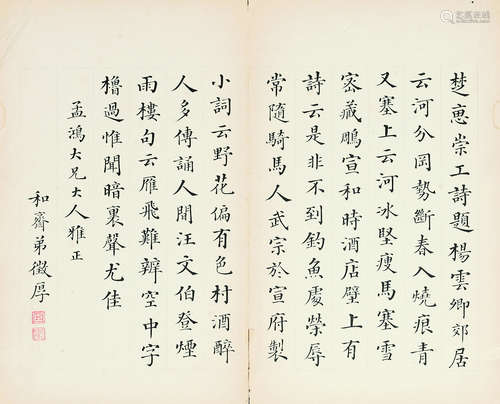 楚惠崇工詩題楊雲卿郊居
云河分岡勢斷春入燒痕青
又塞上云河冰堅瘦馬塞雪
密藏鵰宣和時酒店壁上有
詩云是非不到釣魚處榮辱
常隨騎馬人武宗於宣府製
小詞云野花偏有色村酒醉
人多傳誦人間汪文伯登煙
雨樓句云雁飛難辨空中字
櫓過惟聞暗裏聲尤佳
孟鴻大兄大人雅正
和齋弟徵厚